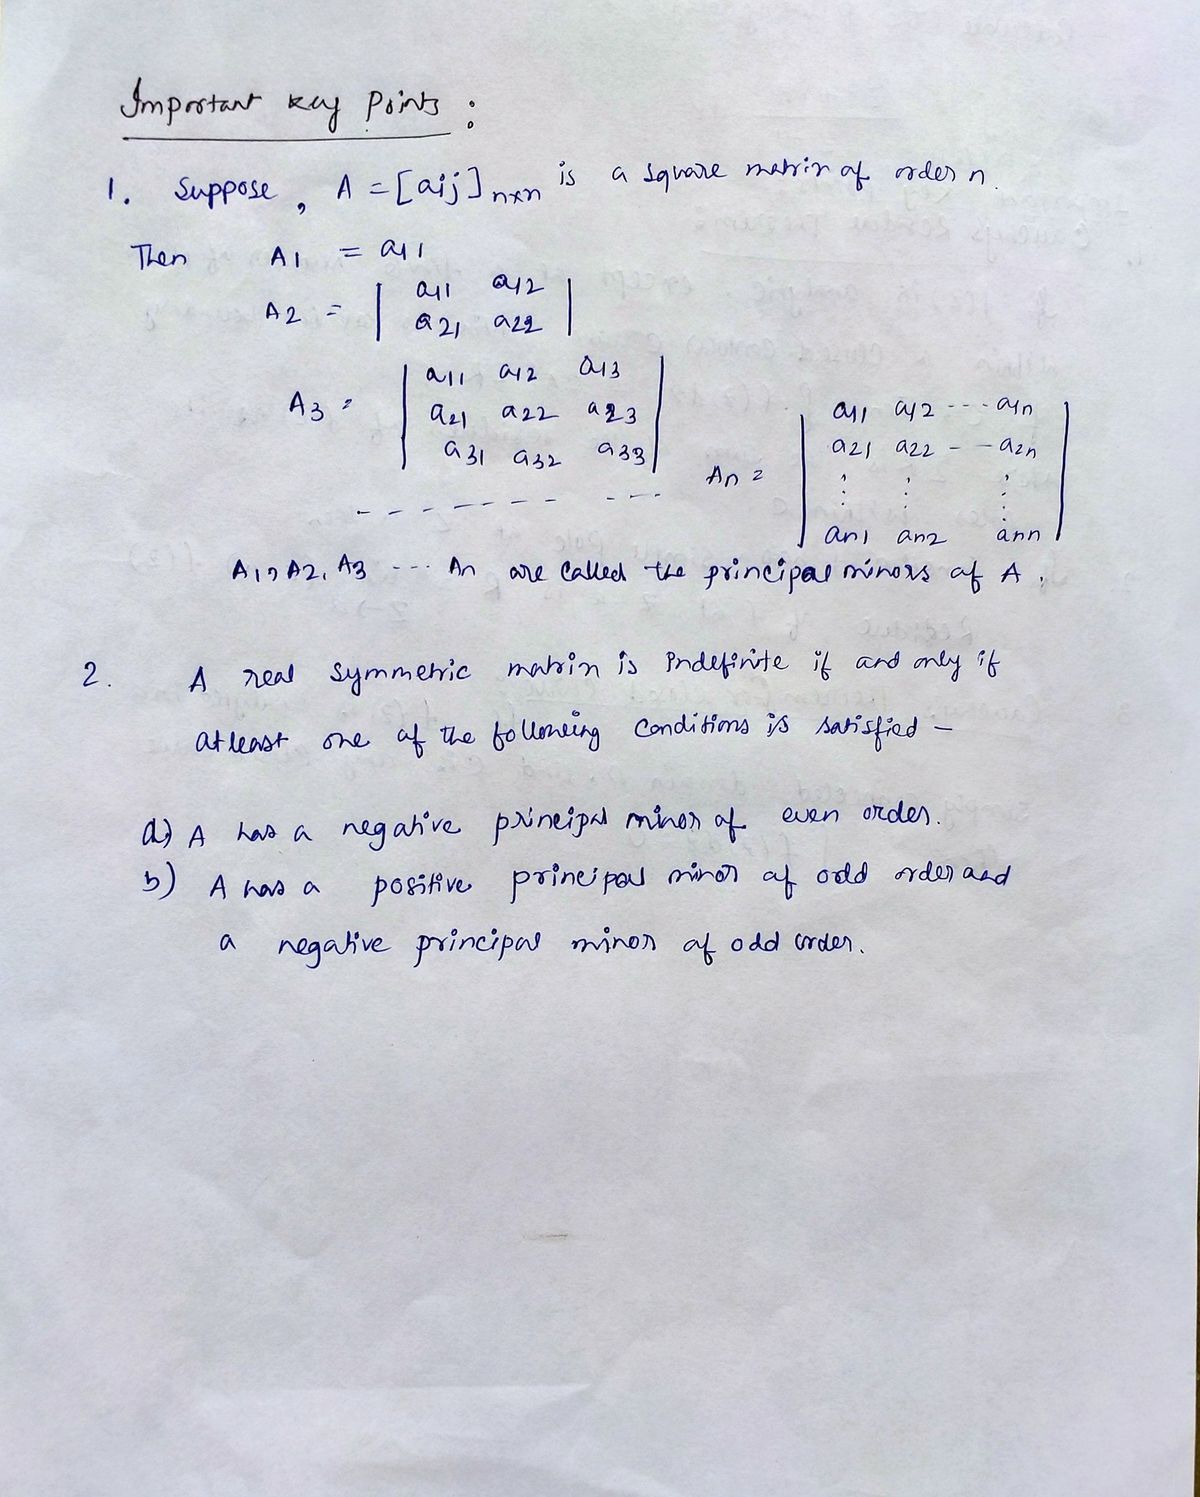 Important Key Points :
1. Suppose, A = [aij]nxn is a square matrix of order n.
Then A1 = a11
A2 = | a11 a12 |
| a21 a22 |
A3 = | a11 a12 a13 |
| a21 a22 a23 |
| a31 a32 a33 |
An = | a11 a12 --- a1n |
| a21 a22 -- a2n |
| : : : |
| an1 an2 ann |
------- ---
A1, A2, A3 --- An are called the principal minors of A.
2. A real symmetric matrix is Indefinite if and only if
atleast one of the following conditions is satisfied -
a) A has a negative principal minor of even order.
b) A has a positive principal minor of odd order and
a negative principal minor of odd order.